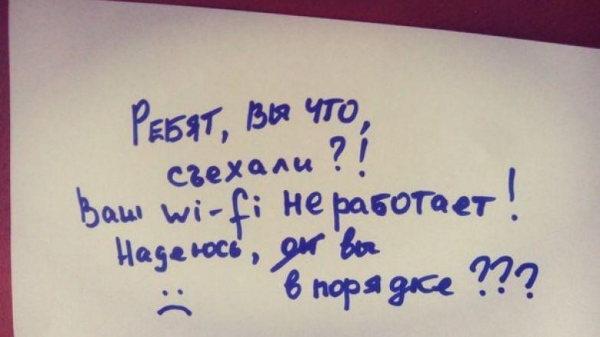 Ребят, вы что,
съехали?!
Ваш wi-fi не работает!
Надеюсь, он вы
в порядке ???
:(